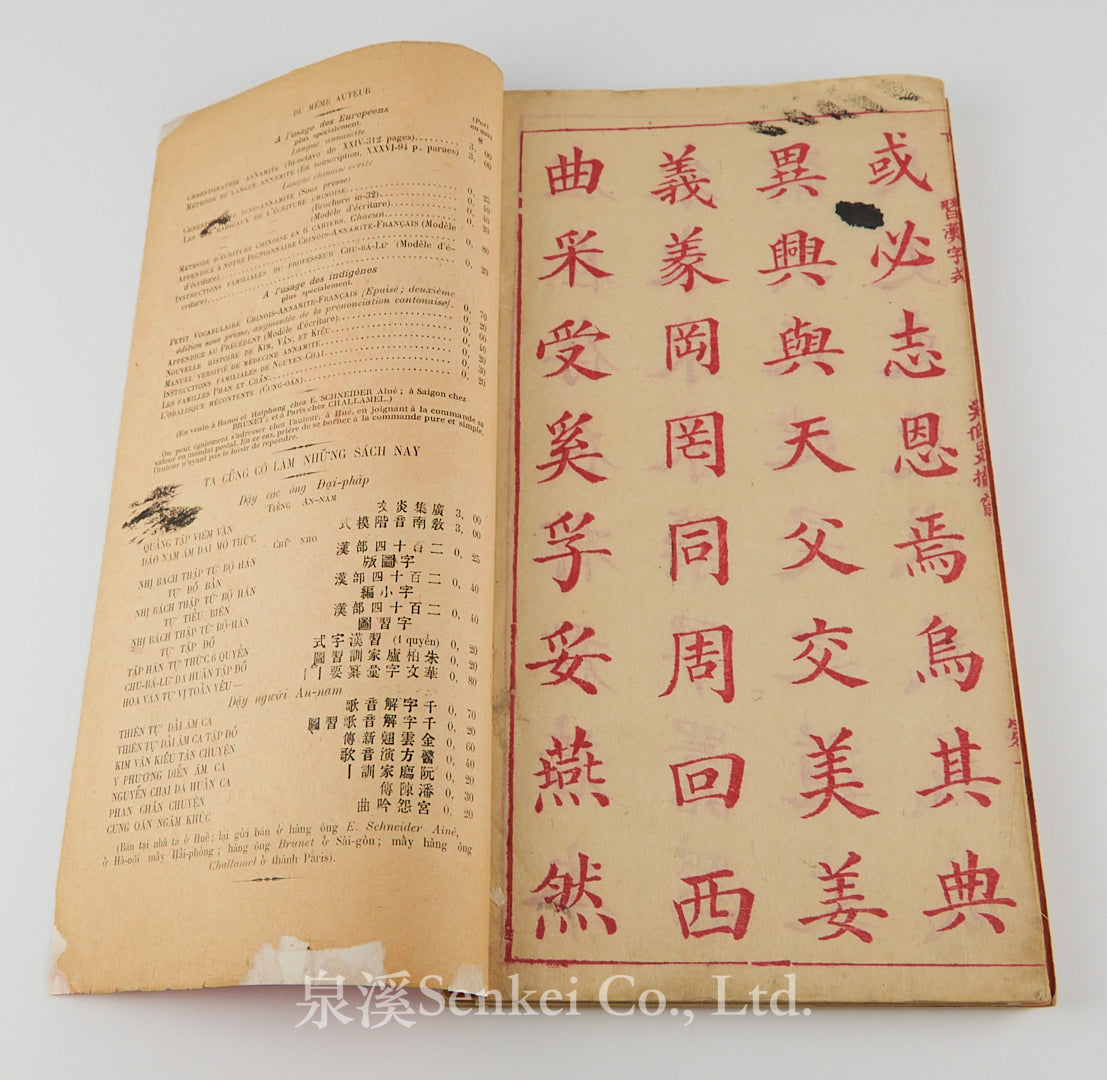 DU MÊME AUTEUR
A l'usage des Européens
plus spécialement.
Langue annamite
CHRESTOMATHIE ANNAMITE (In-octavo de XXIV-312 pages) 3, 00
MÉTHODE DE LANGUE ANNAMITE (En souscription, XXXVI-94 p. parues) 3, 00
Langue chinoise écrite
CHRESTOMATHIE SINO-ANNAMITE (Sous presse)
LES RADICAUX DE L'ÉCRITURE CHINOISE 0, 25
(Brochure in-32) 0, 40
(Modèle d'écriture) 0, 40
MÉTHODE D'ÉCRITURE CHINOISE EN 6 CAHIERS. Chacun 0, 20
APPENDICE A NOTRE DICTIONNAIRE CHINOIS-ANNAMITE-FRANÇAIS (Modèle
d'écriture) 0, 80
INSTRUCTIONS FAMILIALES DU PROFESSEUR CHU-BÁ-LƯ (Modèle d'é-
criture) 0, 20
A l'usage des indigènes
plus spécialement.
PETIT VOCABULAIRE CHINOIS-ANNAMITE-FRANÇAIS (Epuisé; deuxième
édition sous presse, augmentée de la prononciation cantonaise) 0, 70
APPENDICE AU PRÉCÉDENT (Modèle d'écriture) 0, 20
NOUVELLE HISTOIRE DE KIM, VÂN, ET KIỀU 0, 60
MANUEL VERSIFIÉ DE MÉDECINE ANNAMITE 0, 40
INSTRUCTIONS FAMILIALES DE NGUYEN-CHAI 0, 20
LES FAMILLES PHAN ET CHẤN 0, 30
L'ODALISQUE MÉCONTENTE (CUNG-OÁN) 0, 20
(En vente à Hanoi et Haiphong chez E. SCHNEIDER Aîné; à Saigon chez
BRUNET; et à Paris chez CHALLAMEL.)
On peut également s'adresser chez l'auteur, à Hué, en joignant à la commande sa
valeur en mandat postal. En ce cas, prière de se borner à la commande pure et simple,
l'auteur n'ayant pas le loisir de répondre.
TA CŨNG CÓ LÀM NHỮNG SÁCH NAY
Dậy các ông Đại-pháp
TIẾNG AN-NAM
QUẢNG TẬP VIÊM VĂN 廣集炎文 3, 00
ĐÁO NAM ÂM GIAI MÔ THỨC 教南音階模式 3, 00
CHỮ NHO
NHỊ BÁCH THẬP TỨ BỘ HÁN 二百十四部漢
TỰ ĐỒ BẢN 字圖版 0, 25
NHỊ BÁCH THẬP TỨ BỘ HÁN 二百十四部漢
TỰ TIỂU BIÊN 字小編 0, 40
NHỊ BÁCH THẬP TỨ BỘ-HÁN 二百十四部漢
TỰ TẬP ĐỒ 字習圖 0, 40
TẬP HÁN TỰ THỨC 6 QUYỂN 習漢字式 (1 quyển) 0, 20
CHU-BÁ-LƯ DA HUẤN TẬP ĐỒ 朱柏廬家訓習圖 0, 20
HOA VĂN TỰ VỊ TOẢN YẾU— 華文字彙纂要 0, 80
Dậy người An-nam
THIÊN TỰ DẢI ÂM CA 千字解音歌 0, 70
THIÊN TỰ DẢI ÂM CA TẬP ĐỒ 千字解音歌習圖 0, 20
KIM VÂN KIỀU TÂN CHUYỆN 金雲翹新傳 0, 60
Y PHƯƠNG DIỄN ÂM CA 醫方演音歌 0, 40
NGUYỄN CHẠI DA HUẤN CA 阮廌家訓 0, 20
PHAN CHẤN CHUYỆN 潘陳傳 0, 30
CUNG OÁN NGÂM KHÚC 宮怨吟曲 0, 20
(Bán tại nhà ta ở Huế; lại gửi bán ở hàng ông E. Schneider Ainé,
ở Hà-nội mấy Hải-phòng; hàng ông Brunet ở Sài-gòn; mấy hàng ông
Challamel ở thành Paris).
習漢字式
或必志恩焉烏其典
異興與天父交美姜
義羕岡罔同周回西
曲采受奚孚妥燕然
泉溪Senkei Co., Ltd.